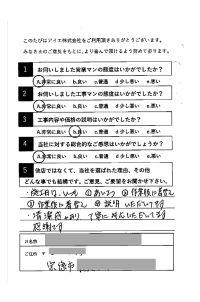 このたびはアイエ株式会社をご利用頂きありがとうございます。
みなさまのご意見をもとに、より喜んで頂けるよう努めて参ります。
1 お伺いしました営業マンの態度はいかがでしたか?
A.非常に良い B.良い C.普通 D.少し悪い E.悪い
2 お伺いしました工事マンの態度はいかがでしたか?
A.非常に良い B.良い C.普通 D.少し悪い E.悪い
3 工事内容や価格の説明はいかがでしたか?
A.非常に良い B.良い C.普通 D.少し悪い E.悪い
4 当社に対する総合的なご感想はいかがでしょうか?
A.非常に良い B.良い C.普通 D.少し悪い E.悪い
5 他店ではなくて、当社を選ばれた理由、その他
どんな事でも結構です。ご意見、ご要望をお聞かせ下さい。
①あいさつ ②作業後に
③作業後に ④説明 いただいて
・清潔感があり 丁寧に対応いただいて
感謝です
お名前
ご住所 〒